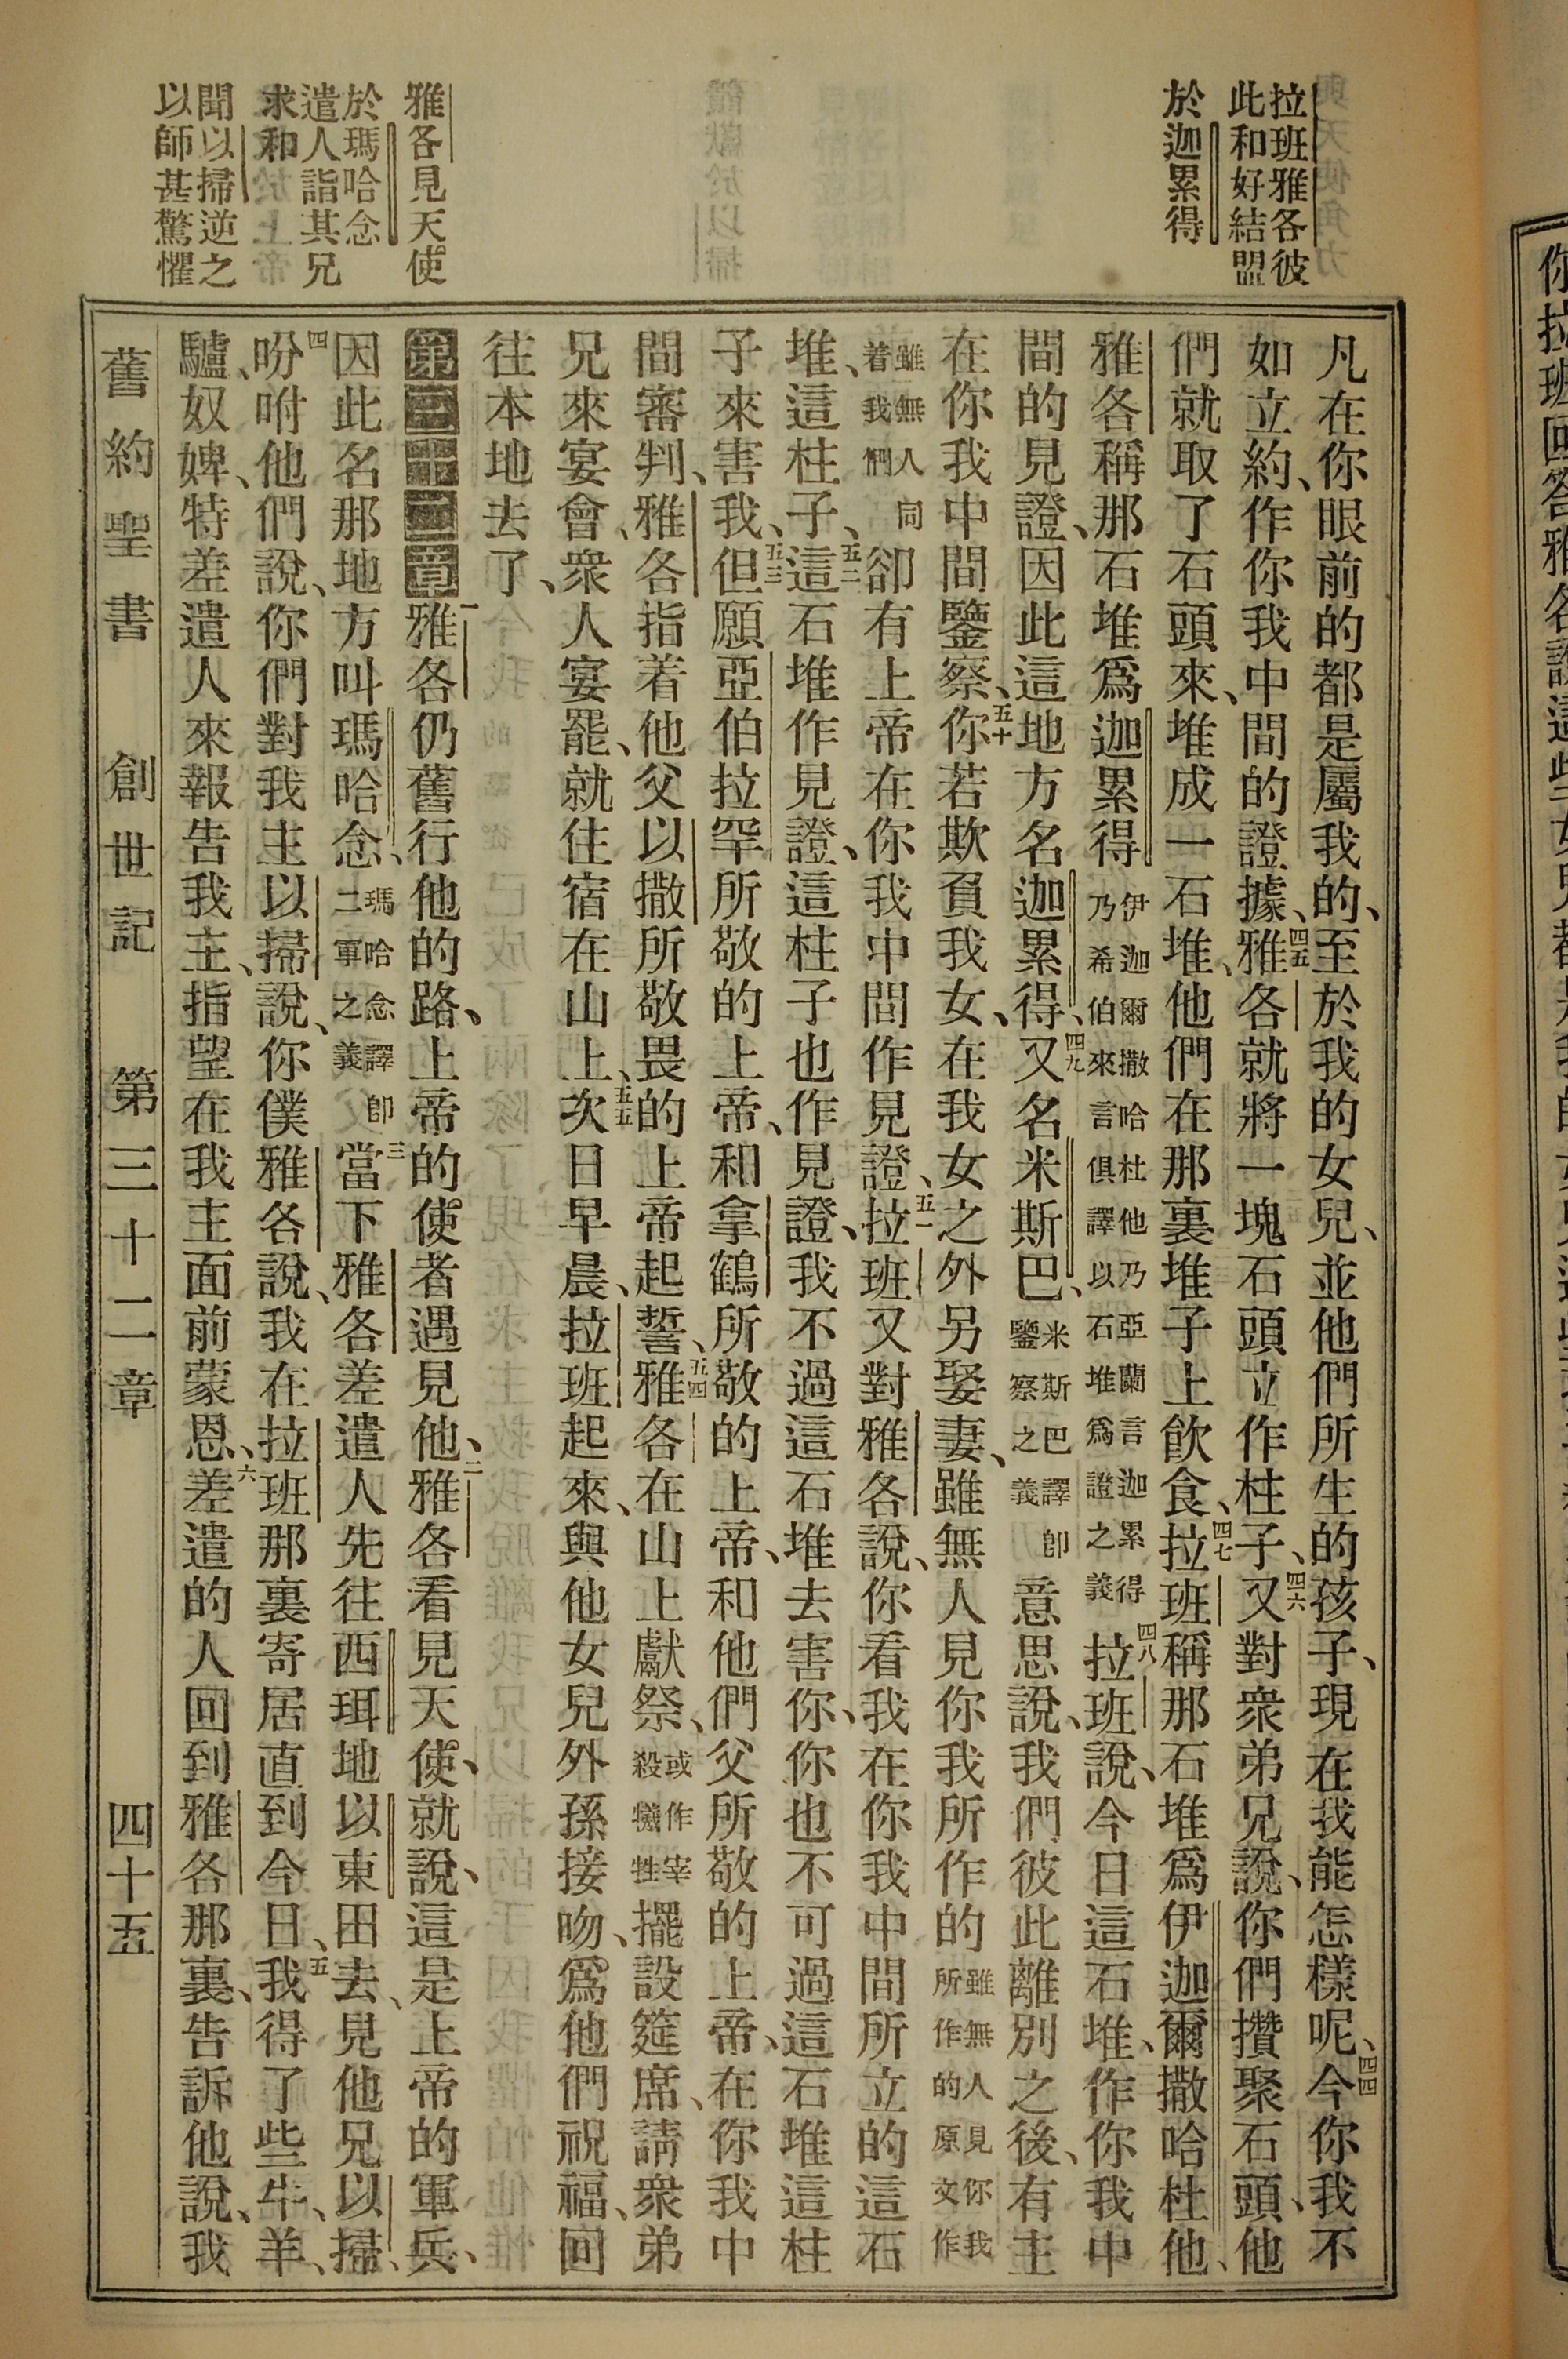 拉班雅各彼
此和好結盟
於迦累得
雅各見天使
於瑪哈念
遣人詣其兄
求和
聞以掃逆之
以師甚驚懼
凡在你眼前的都是屬我的、至於我的女兒、並他們所生的孩子、現在我能怎樣呢、四四今你我不
如立約、作你我中間的證據、四五雅各就將一塊石頭立作柱子、四六又對衆弟兄說、你們攢聚石頭、他
們就取了石頭來、堆成一石堆、他們在那裏堆子上飲食、四七拉班稱那石堆爲伊迦爾撒哈杜他、
雅各稱那石堆爲迦累得伊迦爾撒哈杜他乃亞蘭言迦累得乃希伯來言俱譯以石堆爲證之義四八拉班說、今日這石堆、作你我中
間的見證、因此這地方名迦累得、四九又名米斯巴、米斯巴譯卽鑒察之義意思說、我們彼此離別之後、有主
在你我中間鑒察、五十你若欺負我女、在我女之外另娶妻、雖無人見你我所作的雖無人見你我所作的原文作
雖無人同着我們卻有上帝在你我中間作見證、五一拉班又對雅各說、你看我在你我中間所立的這石
堆、這柱子、五二這石堆作見證、這柱子也作見證、我不過這石堆去害你、你也不可過這石堆這柱
子來害我、五三但願亞伯拉罕所敬的上帝、和拿鶴所敬的上帝、和他們父所敬的上帝、在你我中
間審判、雅各指着他父以撒所敬畏的上帝起誓、五四雅各在山上獻祭、或作宰殺犧牲擺設筵席、請衆弟
兄來宴會、衆人宴罷、就住宿在山上、五五次日早晨、拉班起來、與他女兒外孫接吻、爲他們祝福、回
往本地去了、
第三十二章一雅各仍舊行他的路、上帝的使者遇見他、二雅各看見天使、就說、這是上帝的軍兵、
因此名那地方叫瑪哈念、瑪哈念譯卽二軍之義三當下雅各差遣人先往西珥地以東田去、見他兄以掃、
四吩咐他們說、你們對我主以掃說、你僕雅各說、我在拉班那裏寄居直到今日、五我得了些牛、羊、
驢、奴婢、特差遣人來報告我主、指望在我主面前蒙恩、六差遣的人回到雅各那裏、告訴他說、我
舊約聖書 創世記 第三十二章 四十五